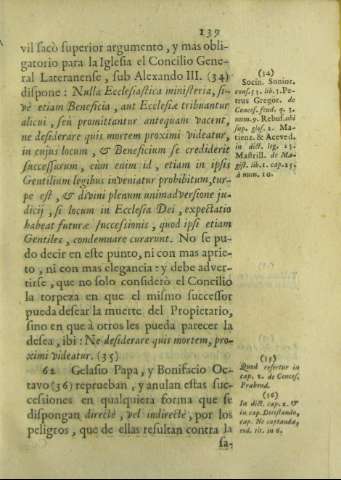 139
vil sacò superior argumento, y mas obli-
gatorio para la Iglesia el Concilio Gene-
ral Lateranense, sub Alexando III. (34)
dispone: Nulla Ecclesiastica ministeria, si-
vè etiam Beneficia, aut Ecclesiæ tribuantur
alicui, seù promittantur antequam vacent,
ne desiderare quis mortem proximi videatur,
in cujus locum, & Beneficium se crediderit
successurum, cùm enim id, etiam in ipsis
Gentilium legibus inveniatur prohibitum, tur-
pe est, & divini plenum animadversione ju-
dicij, si locum in Ecclesia Dei, expectatio
habeat futuræ successionis, quod ipsi etiam
Gentiles, condemnare curarunt. No se pu-
do decir en este punto, ni con mas aprie-
to, ni con mas elegancia: y debe adver-
tirse, que no solo considerò el Concilio
la torpeza en que el mismo successor
pueda desear la muerte del Propietario,
sino en que à otros les pueda parecer la
desea, ibi: Ne desiderare quis mortem, pro-
ximi videatur. (35)
62 Gelasio Papa, y Bonifacio Oc-
tavo (36) reprueban, y anulan estas suc-
cessiones en qualquiera forma que se
dispongan directè, vel indirectè, por los
peligros, que de ellas resultan contra la
sa-
(34)
Socin. Sonior.
cons. 53. lib. 3. Pe-
trus Gregor. de
Concess. feud. q. 2.
num. 9. Rebuf. ubi
sup. glos. 2. Ma-
tienz. & Aceved.
in dict. leg. 13.
Mastrill. de Ma-
gist. lib. 1. cap. 25.
à num. 10.
(35)
Quod refertur in
cap. 2. de Conces.
Prabend.
(36)
In dict. cap. 2. &
in cap. Detestando,
cap. Ne captanda,
eod. tit. in 6.